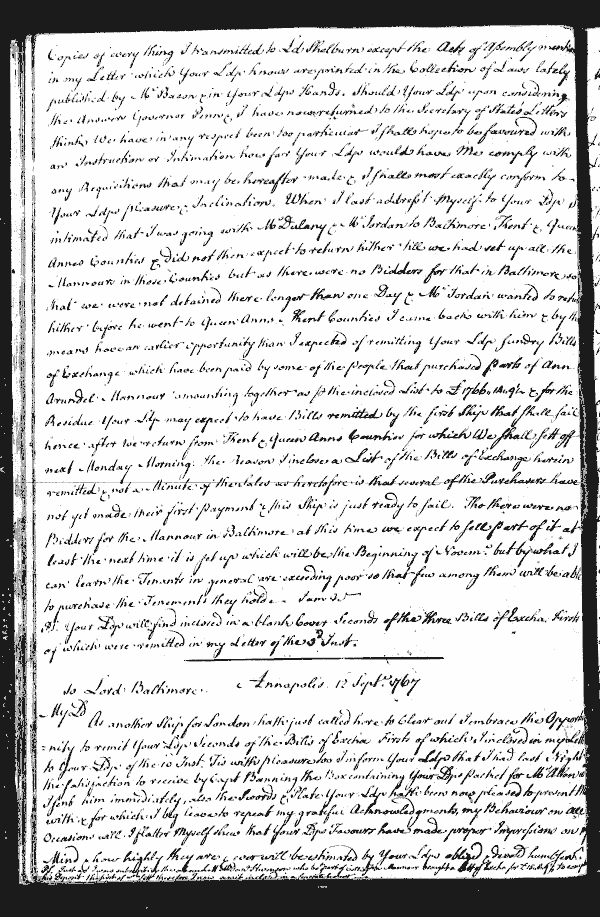 Copies of every thing I transmitted to Ld Shelburn except the Acts of Assembly
in my Letter which Your Ldp knows are printed in the Collection of Laws lately
published by Mr Bacon & in Your Ldps Hands. Should Your Ldp upon considering
the Answers Governor Penn & I have now returned to the Secretary of States Letters
think We have in any respect been too particular I shall hope to be favoured with
an Instruction or Intimation how far Your Ldp would have Me comply with
any Requisitions that may be hereafter made & I shall most exactly conform to
Your Ldps pleasure & Inclination. When I last addresst Myself to Your Ldp I
intimated that I was going with Mr Dulany & Mr Jordan to Baltimore Kent & Queen
Annes Counties & did not then expect to return hither till we had set up all the
Mannours in those Counties but as there were no Bidders for that in Baltimore so
that we were not detained there longer than one Day & Mr Jordan wanted to
hither before he went to Queen Anns & Kent Counties I came back with him & by
means have an earlier opportunity than I expected of remitting Your Ldp sundry Bills
of Exchange which have been paid by some of the People that purchased parts of Ann
Arundel Mannour amounting together as the inclosed List to & for the
Residue Your Ldp may expect to have Bills remitted by the first Ship that shall sail
hence after We return from Kent & Queen Anns Counties for which We shall sett off
next Monday Morning. The Reason I inclose a List of the Bills of Exchange herein
remitted & not a Minute of the Sales as heretofore is that several of the Purchasers have
not yet made their first Payment & this Ship is just ready to sail. Tho there were no
Bidders for the Mannour in Baltimore at this time we expect to sell part of it at
least the next time it is set up which will be the Beginning of Novemr but by what I
can learn the Tenants in general are exceeding poor so that few among them will be able
to purchase the Tenements they hold. I am &c
PS. Your Ldp will find inclosed in a blank Cover Seconds of the three Bills of Excha. Firsts
of which were remitted in my Letter of the 3d Inst.
To Lord Baltimore. Annapolis 12 Septr 1767
My Ld
As another Ship for London hath just called here to Clear out I embrace the
nity to remit Your Ldp Seconds of the Bills of Excha First of which I inclosed in my
to Your Ldp of the 10 Inst. Tis with pleasure too I inform Your Ldp that I had last Night
the Satisfaction to receive by Capt Banning the Box containing Your Ldps Packet for Mr
I sent him immediately, also the Swords & Plate Your Ldp hath been now pleased to present
with & for which I beg leave to repeat my grateful Acknowledgments, my Behaviour on all
Occasions will I flatter Myself shew that Your Ldps Favours have made proper Impressions on
Mind & how highly they are & ever will be estimated by Your Ldps obliged & devotd